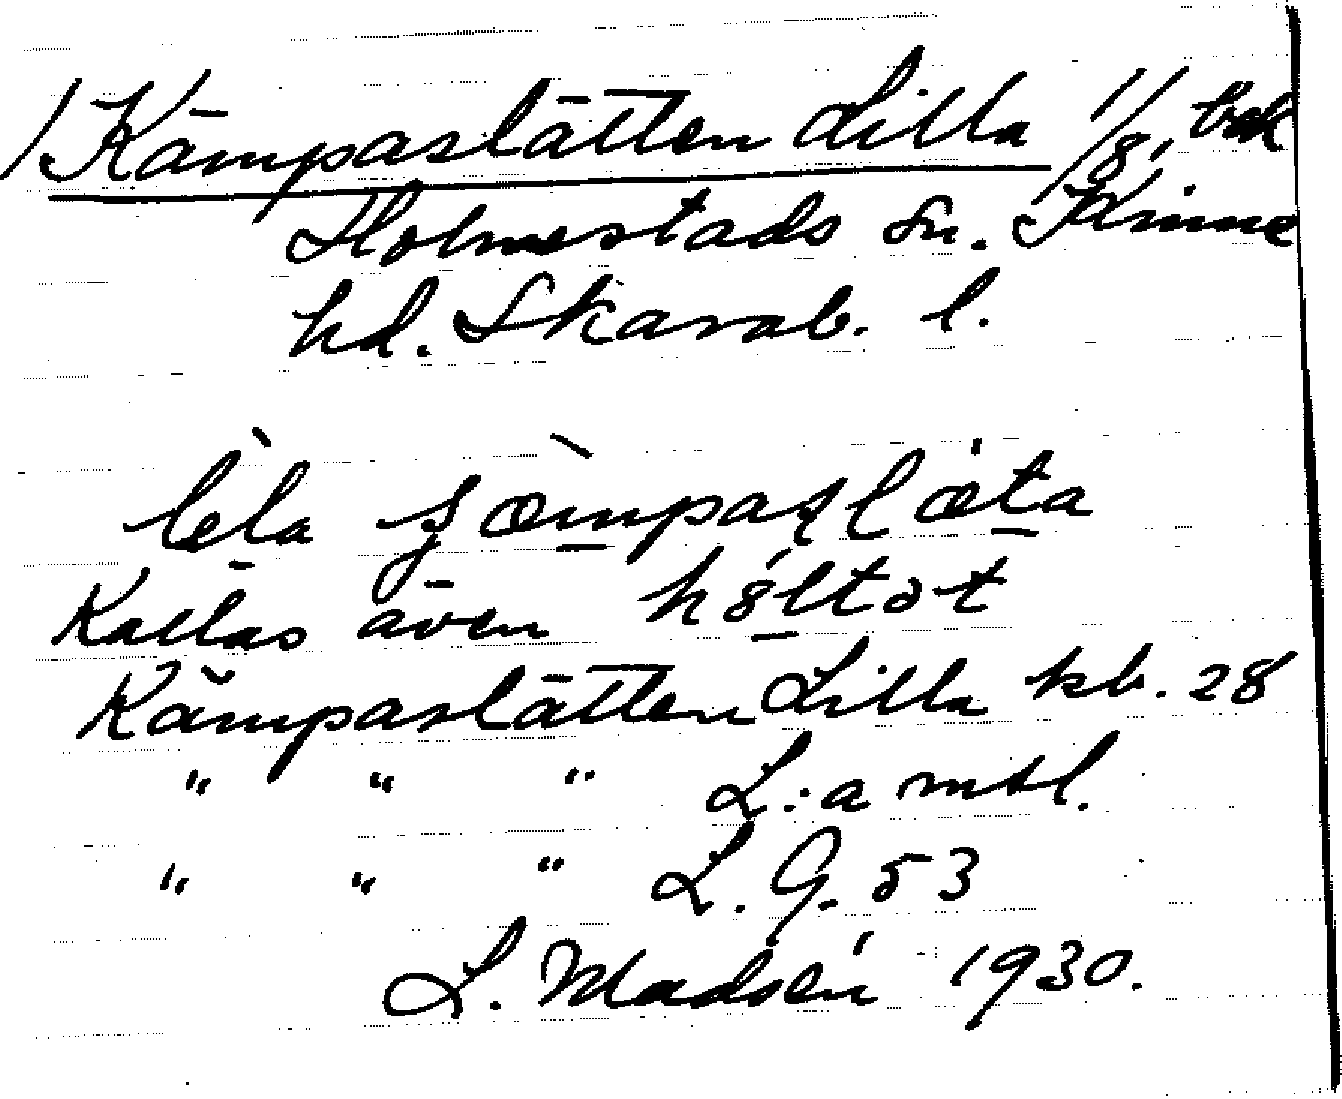 1) Kämpaslätten Lilla 1/8,
Holmestads sn. Kinne
hd. Skarab. l.
Kallas även
Kämpaslätten Lilla kb. 28
" " " L:a mtl.
" " " L. G. 53
L. Madsén 1930.